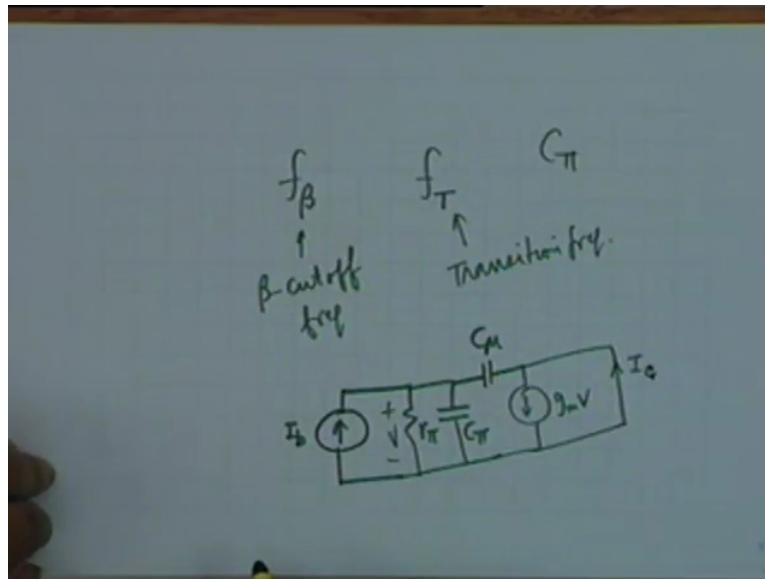 fβ fT Cπ
β-cutoff freq
Transition freq.
Cμ
Ib + V - rπ Cπ gmV Ic